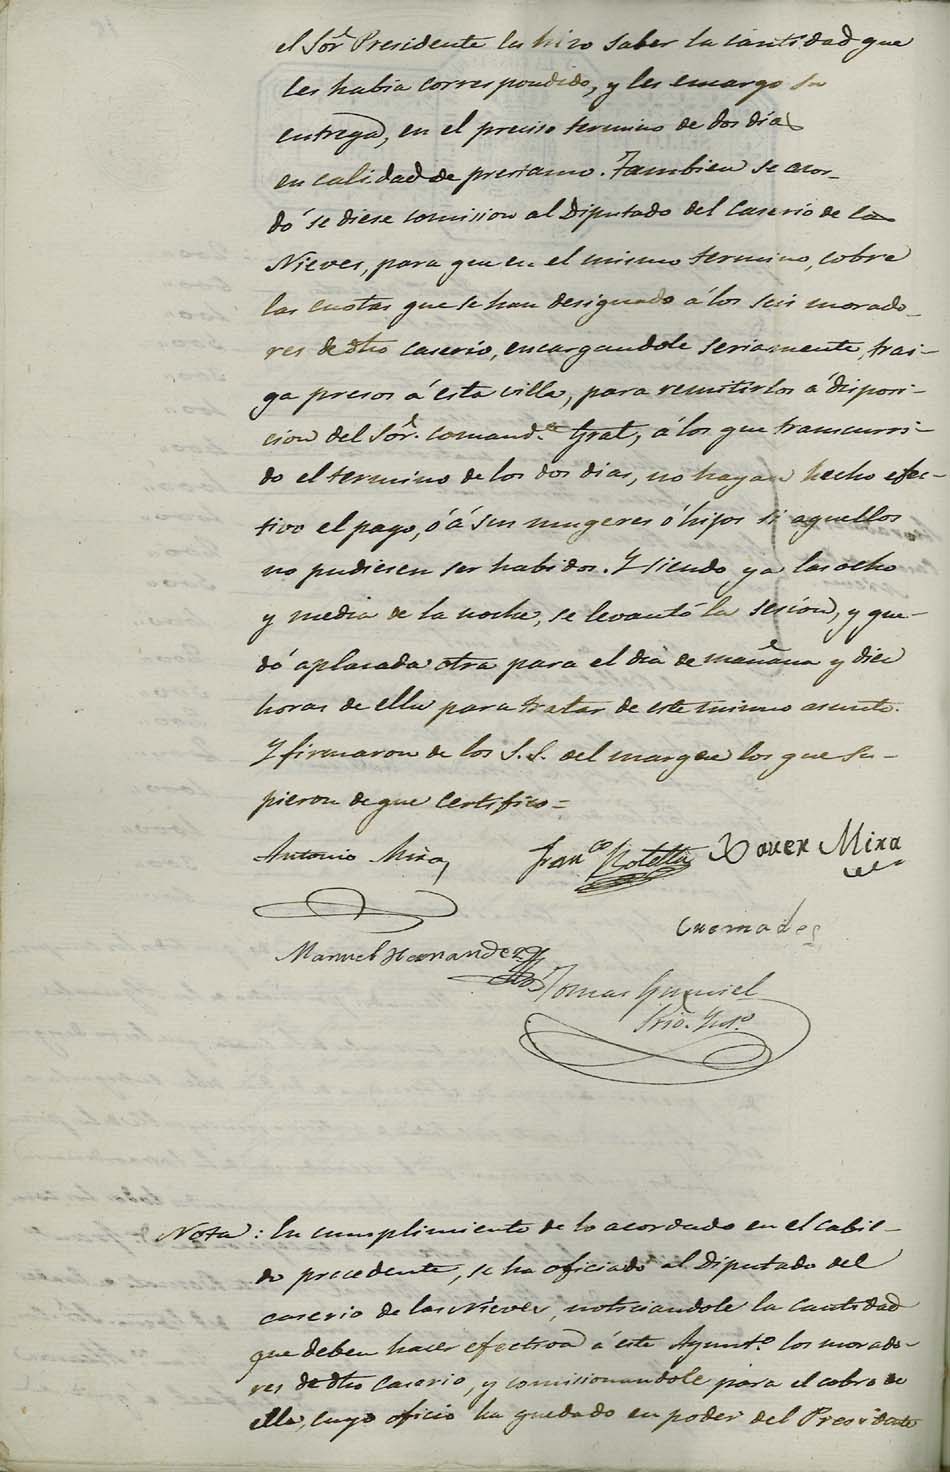 el Sor. Presidente les hizo saber la cantidad que
les habia correspondido, y les encargo su
entrega, en el preciso termino de dos dias
en calidad de prestamo. Tambien se acor-
dó se diese comision al Diputado del Caserio de las
Nieves, para que en el mismo termino, cobre
las cuotas que se han designado á los seis morado-
res de dho caserio, encargandole seriamente, trai-
ga presos á esta villa, para remitirlos á disposi-
cion del Sor. Comand.te Gral, á los que transcurri-
do el termino de los dos dias, no hayan hecho efec-
tivo el pago, ó á sus mugeres ó hijos si aquellos
no pudiesen ser habidos. Y siendo ya las ocho
y media de la noche, se levantó la sesion, y que-
dó aplazada otra para el dia de mañana y diez
horas de ella para tratar de este mismo asunto.
Y firmaron de los S.S. del margen los que su-
pieron de que certifico=
Antonio Mira
Fran.co Botella
Xavier Mira
Cremades
Manuel Hernandez
Tomas
Srio. Int.o
Nota: En cumplimiento de lo acordado en el cabil-
do precedente, se ha oficiado al Diputado del
caserio de las Nieves, noticiandole la cantidad
que deben hacer efectiva á este Ayunt.o los morado-
res de dho Caserio, y comisionandole para el cobro de
ella, cuyo oficio ha quedado en poder del Presidente